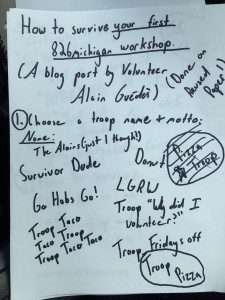 How to survive your first
826michigan workshop.
(A blog post by Volunteer
Alain Guédès)
(Done on
Reused
Paper!)
1. Choose a troop name + motto:
None:
The Alains (just 1 though!)
Survivor Dude
Donut
Pizza
Troop
Go Habs Go!
LGRW
Troop Taco
Taco Troop
Troop Taco Taco
Troop "Why did I
volunteer?"
Troop Fridays off
Troop
Pizza